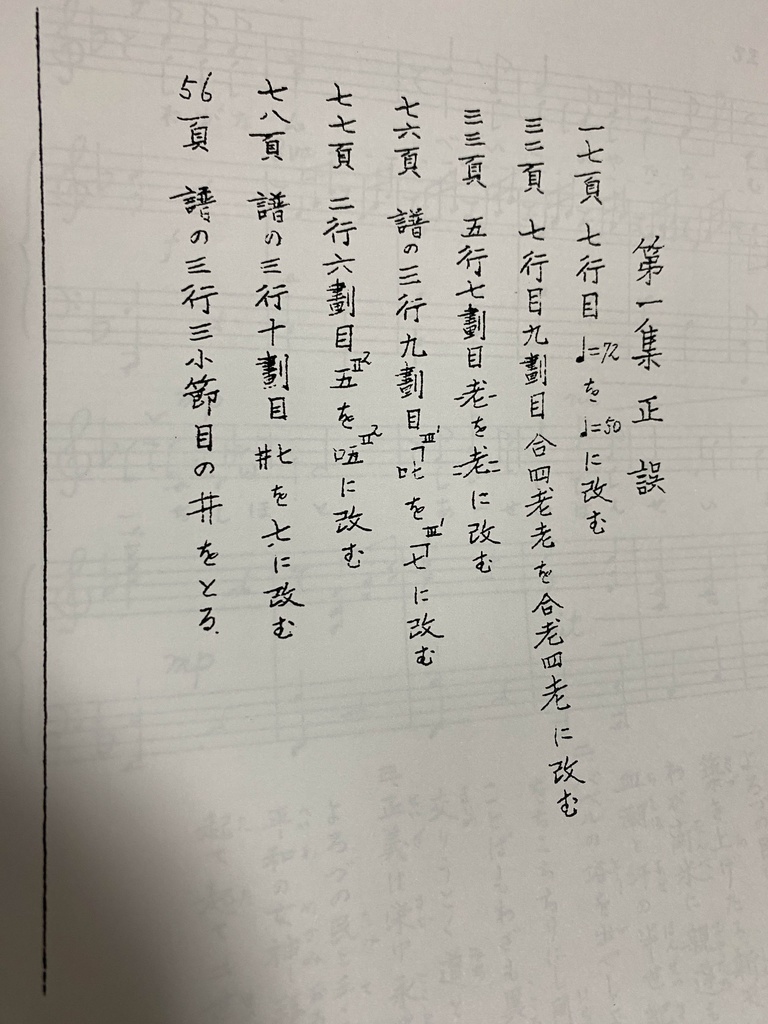 第一集正誤
一七頁 七行目 ♩=72 を ♩=50 に改む
三二頁 七行目九劃目 合四老老を合老四老に改む
三三頁 五行七劃目 -老-を=老=に改む
七六頁 譜の三行九劃目 Ⅲ'㐂を Ⅲ'七に改む
七七頁 二行六劃目 Ⅱ2五を Ⅱ2㕶に改む
七八頁 譜の三行十劃目 #七を七に改む
56頁 譜の三行三小節目の#をとる.